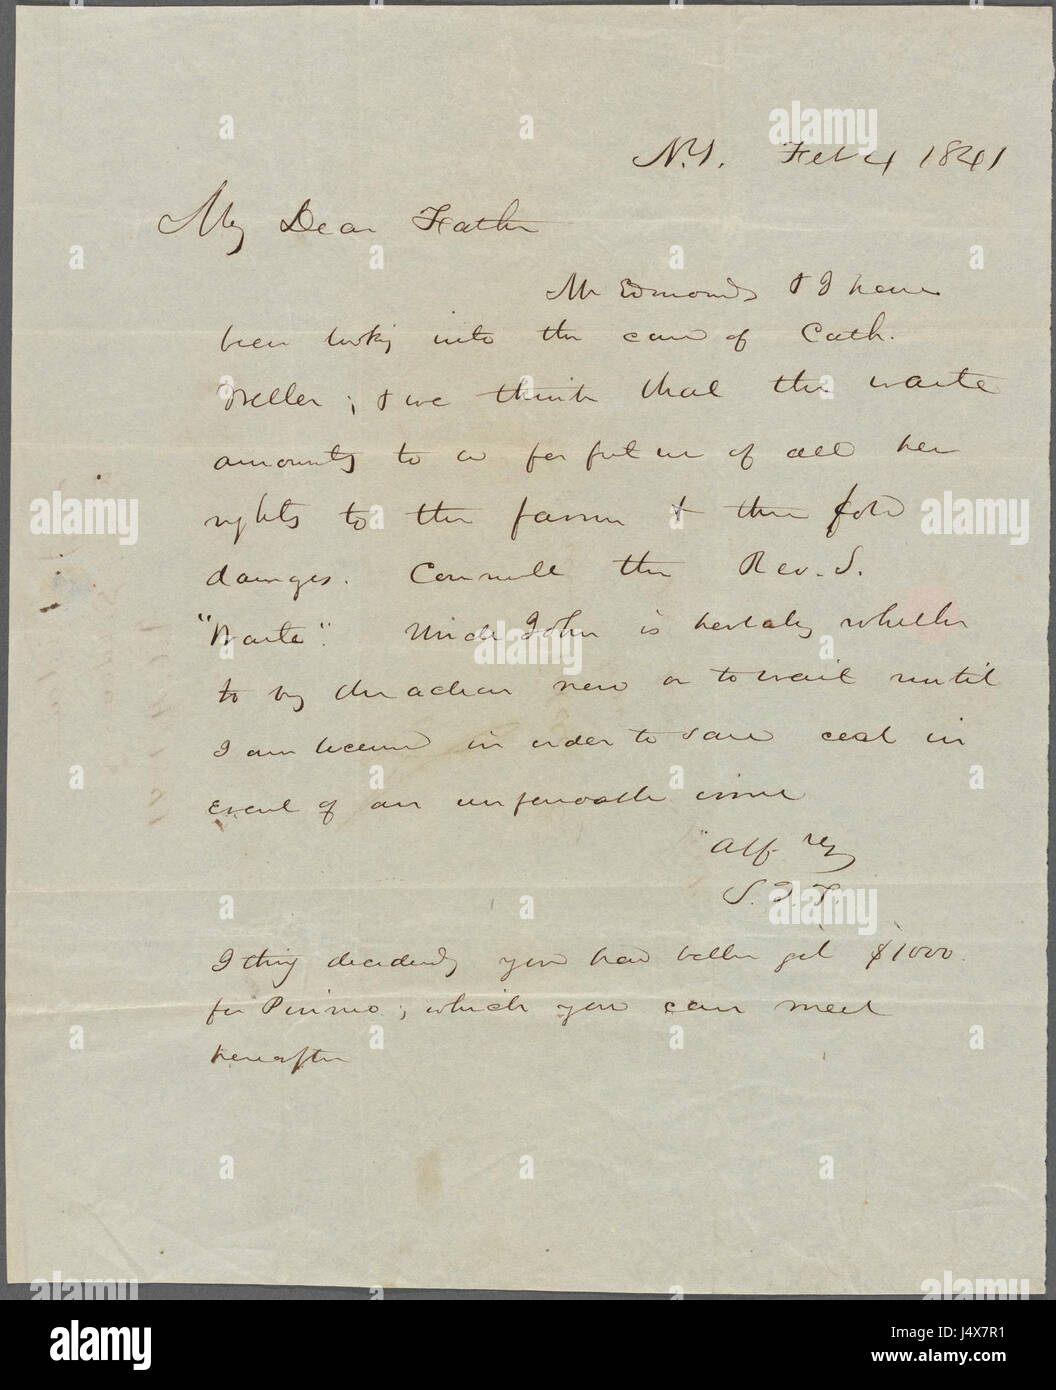 N.Y. Feb 4 1841
My Dear Father
Mr Edmonds & I have
been looking into the case of Cath.
Weller; & we think that the waste
amounts to a forfeiture of all her
rights to the farm & three fold
damages. Consult the Rev. S.
"Waste". Uncle John is hesitating whether
to bring the action now or to wait until
I am licensed in order to save cost in
event of an unfavorable issue
Aff. 
S. J. T.
I think decidedly you had better get $1000
for Primo; which you can meet
hereafter
alamy
Image ID: J4X7R1
www.alamy.com